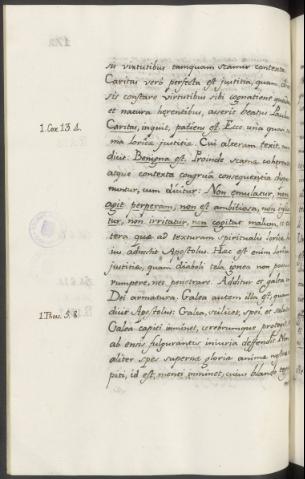 sis virtutibus tamquam squamis contexta.
Caritas verò perfecta est justitia, quam
sis constare virtutibus sibi cognatione
et natura hærentibus, asserit beatus Paulus
1. Cor. 13. 4.
Caritas, inquit, patiens est. Ecce una quæ
ma lorica justitiæ. Cui alteram
dicit: Benigna est. Proinde
atque contexta congrua consequentia
muntur, cum dicitur: Non æmulatur, non
agit perperam, non est ambitiosa, non
tur, non irritatur, non cogitat malum, et
tera quæ ad texturam spiritualis loricæ
jus adnectit Apostolus. Hæc est enim lorica
justitiæ, quam diaboli tela
rumpere, nec penetrare. Additur et galea
Dei armatura. Galea autem illa est, quam
1. Thes. 5. 8.
dicit Apostolus: Galea, scilicet, spei et salutis
Galea capiti iminet, cerebrumque
ab ensis fulgurantis iniuria deffendit. Non
aliter spes supernæ gloriæ animæ
piti, id est, menti iminet, cuius blando